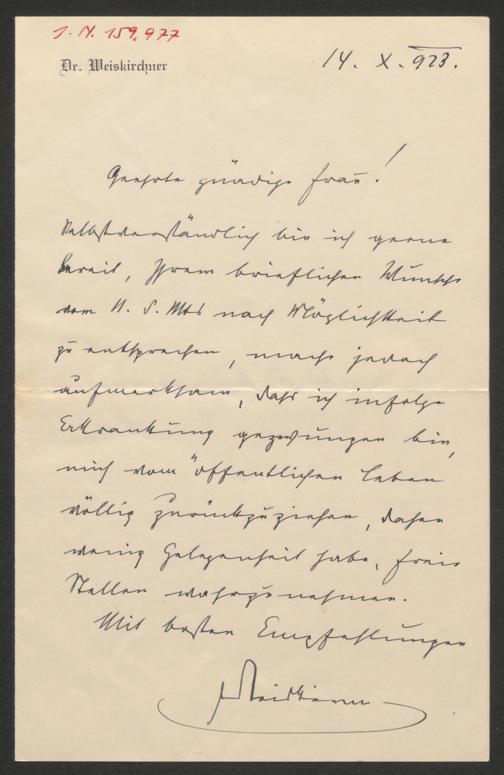 J. N. 159.977
Dr. Weiskirchner
14. X. 923.
Geehrte gnädige Frau!
Selbstverständlich bin ich gerne
bereit, Ihrem brieflichen Wunsche
vom 11. d. Mts nach Möglichkeit
zu entsprechen, mache jedoch
aufmerksam, daß ich infolge
Erkrankung gezwungen bin,
mich vom öffentlichen Leben
völlig zurückzuziehen, daher
wenig Gelegenheit habe, freie
Stellen wahrzunehmen.
Mit besten Empfehlungen
Weiskirchner